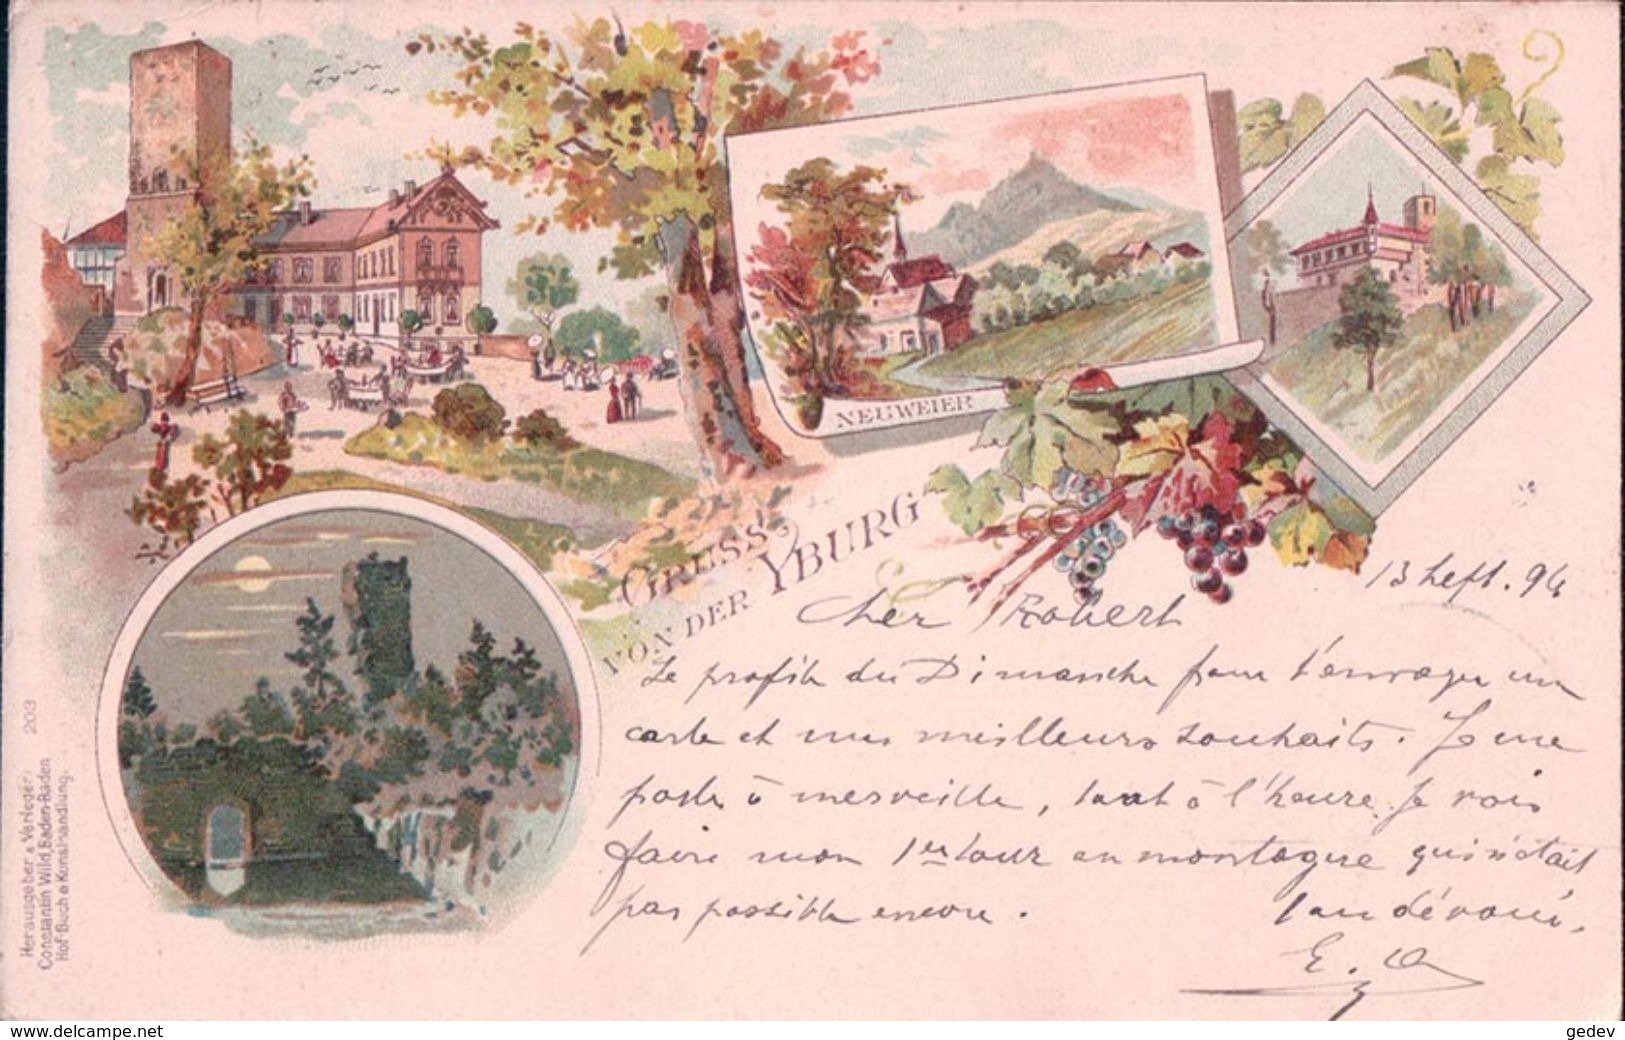 NEUWEIER
GRUSS
VON DER YBURG
13 Sept. 94
Cher Robert
Je profite du Dimanche pour t'envoyer un
carte et mes meilleurs souhaits. Je me
porte à merveille, tout à l'heure je vais
faire mon 1er tour en montagne qui n'était
pas possible encore. Ton dévoué,
Herausgeber u. Verleger: 203
Constantin Wild, Baden-Baden
Hof-Buch & Kunsthandlung.
www.delcampe.net
gedev